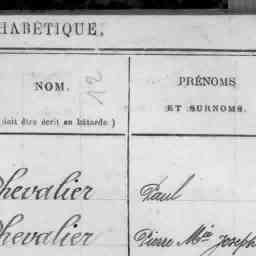 HABÉTIQUE.
NOM.
12
doit être écrit en bâtarde.)
PRÉNOMS
ET SURNOMS.
Chevalier Paul
Chevalier Pierre Mie Joseph